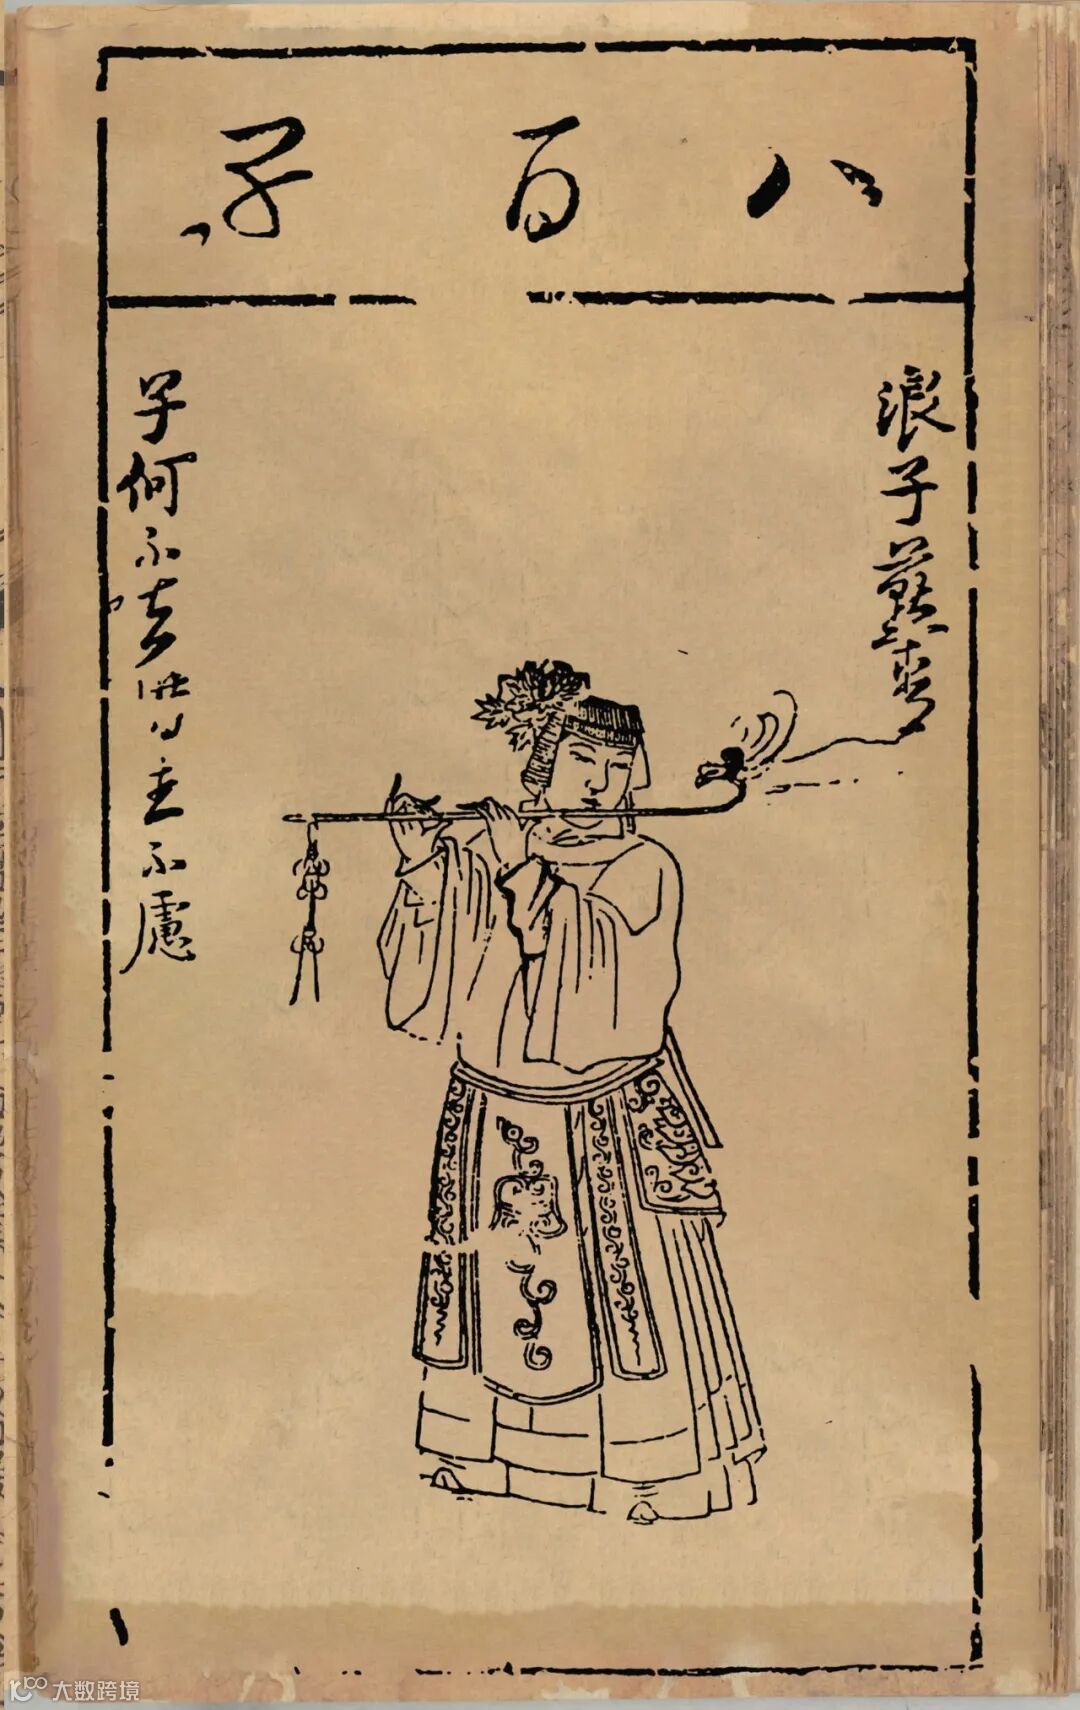 八百子
浪子燕青
子何不去惜主不慮
大数跨境